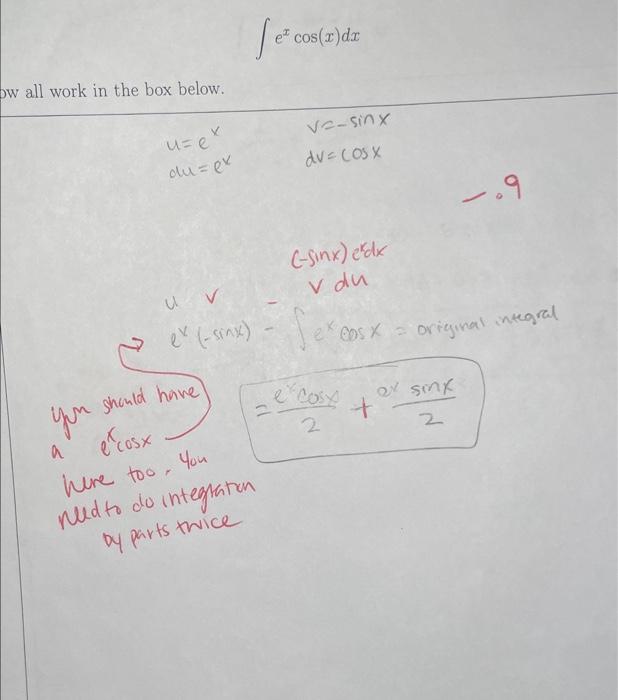 ∫ e^x cos(x)dx
ow all work in the box below.
u = e^x v = -sinx
du = e^x dv = cosx
-.9
(-sinx) e^x dx
u v - v du
e^x (-sinx) - ∫ e^x cosx = original integral
you should have
a e^x cosx
here too. You
need to do integration
by parts twice
= e^x cosx / 2 + e^x sinx / 2